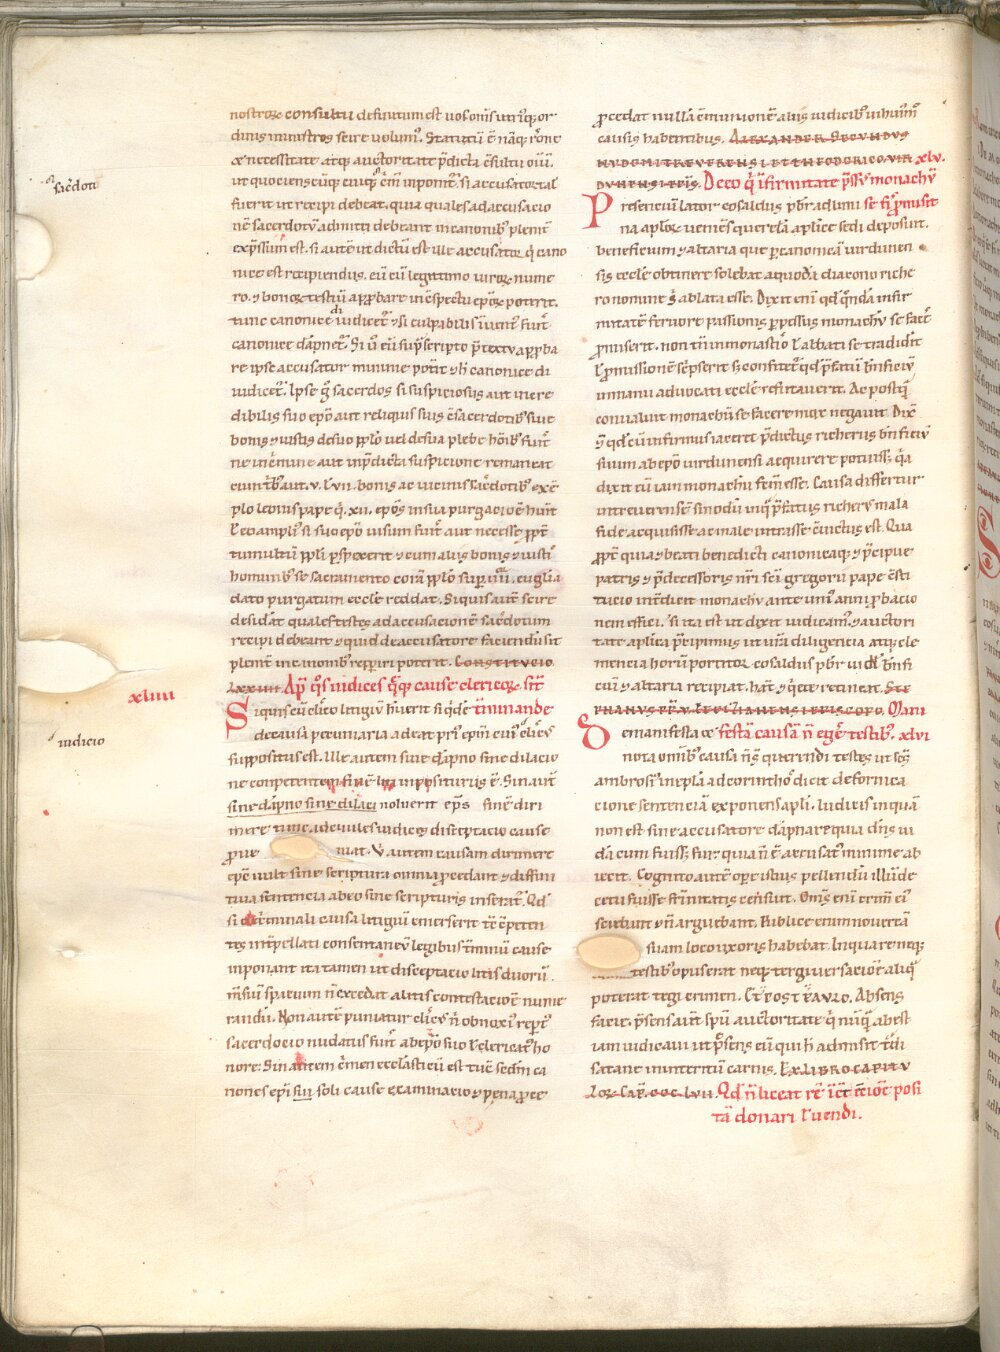 nostroꝝ consultu definitum est uos om̄s utriꝰq; or
dinis ministros scire uolumꝰ. Statutū ē nāq; rōne
⁊ necessitate atq; auctoritate p̄dicti c̄sultus oīū.
ut quocienscūq; cuiq; c̄m̄ inponit᷑. si accusator tal̄
sac̄doti
fuerit ut recipi debeat. quia quales ad accusacio
nē sacerdotū admitti debeant in canonibꝰ plenit᷑
exp̄ssum est. si autē ut dictū est ille accusator q̇ cano
nice est recipiendus. eū cū legitimo uiroꝝ nume
ro. ⁊ bonoꝝ testiū app̄bare in c̄spectu ep̄oꝝ poterit.
tunc canonice diiudicet᷑ ⁊ si culpabilis īuent᷑ fuīt
canonice dāpnet᷑. Si ū eū sup̄scripto p̄textu app̄ba
re ipse accusator minime potūit ⁊ h̄ canonice di
iudicet᷑. Ipse g̊ sacerdos si suspiciosus aut incre
dibilis suo ep̄o aut reliquis suis c̄sacerdotibꝰ siue
bonis ⁊ iustis de suo pplo uel de sua plebe hōibꝰ fuīt
ne in c̄mine aut in p̄dicta suspicione remaneat
cum tribꝰ aut .v. l̄ vii. bonis ac uicinis sac̄dotibꝰ exē
plo leonis pape q̇. xii. ep̄os in sua purgacione hūit
l̄ eo ampliꝰ si suo ep̄o uisum fuīt aut necesse ppt̄
tumultū ppli psp̄exerit ⁊ cum aliis bonis ⁊ iustis
hominibꝰ se sacramento corā pplo sup .iiii. euglīa
dato purgatum eccl̄e reddat. Si quis autē scire
desid̄at quales testes ad accusacionē sac̄dotum
recipi debeant ⁊ quid de accusatore faciendū sit
plenit᷑ in canonibꝰ reppiri poterit. Constitucio
lxxiiii Ap̄ q̊s iudices q̄q; cause clericoꝝ s̄it
xliiii
Siquis cū cl̄ico litigiū habuerit si q̇dē t̄minande
de causa pecuniaria adeat prī ep̄m cui cl̄icꝰ
iudicio
suppositus est. Ille autem siue dāpno sine dilacio
ne conpetentem finē liti inpositurus ē. Sin autē
sine dāpno sine dilaci noluerit ep̄s finē diri
mere tunc ad ciuiles iudices disceptacio cause
p̄ue uiat. Ū autem causam dirimere
ep̄c uult sine scriptura omnia p̄cedant ⁊ diffini
tiua sentencia ab eo sine scripturis inserat᷑. Qd̄
si de c̄minali causa litigiū emerserit tc̄ c̄peten
tes int̄pellati consentaneū legibus t̄minū cause
inponant ita tamen ut disceptacio litis duorū
m̄siū spacium n̄ excedat a litis contestacioē nume
randū. Non autē puniatur cl̄icꝰ n̄ obnoxiꝰ repert᷑
sacerdocio nudatus fuīt ab ep̄o suo l̄ clericat᷑ ho
nore. Sin autem c̄men eccl̄asticū est tūc sedm̄ ca
nones ep̄i sui soli cause examinacio ⁊ pena p̄ce
p̄cedat nullā c̄munionē aliis iudicibꝰ in huiꝰm̄
causis habentibus. Alexander Secundus
hudoni treverensi et theodorico vir xlv.
dunensi ep̄is. De eo q̇ ī firmitate p̄ss̄ꝰ monachū
Presenciū lator cosaldus pb̄r ad limi se fi p̄misit
na ap̄loꝝ ueniēs querelā ap̄lice sedi deposuit.
beneficium ⁊ altaria que p̄ canonicā uirdunen
sis eccl̄e obtinere solebat a quodā diacono riche
ro nomine ḡ ablata esse. Dixit enī qd̄ q̇ndā infir
mitatē feruore passionis p̄pessus monachū se facē
p̄miserit. non tn̄ in monast̄io l̄ abbati se tradidit
l̄ p̄missionē sc̄psērit s; confitet᷑ qd̄ p̄fatū bn̄ficiū
in manu aduocati eccl̄e refutauerit. Ac postq̄
conualuit monachū se facere mox negauit. Dix̄
⁊ qd̄ cū infirmus iaceret p̄dictus richerus bn̄ficiū
suum ab ep̄o uirdunensi acquirere potuiss; q̇a
dixit eū iam monachū fcm̄ esse. Causa differtur
in treuerensē sinodū in q̄ p̄fatus richerꝰ mala
fide acquisisse ac male intrasse c̄uictus est. Qua
ppt̄ quia ⁊ beati benedicti canonicaq; ⁊ p̄cipue
patris ⁊ p̄decessoris nr̄i sc̄i gregorii pape c̄sti
tucio int̄dicit monachū ante uniꝰ anni p̄bacio
nem effici. si ita est ut dixit iudicamꝰ. ⁊ auctori
tate ap̄lica p̄cipimus ut ura diligencia atq; cle
mencia horū portitor cosaldus pb̄r uidl̄ bn̄fi
ciū ⁊ altaria recipiat. hat̄ ⁊ q̇ete retineat. Ste
phanus p̄p̄. v. lepicianensi episcopo. Mani
De manifesta ⁊c festā causā n̄ egē testibꝰ. xlvi
nota om̄ibꝰ causa n̄ s̄ querendi testes ut sc̄s
ambrosiꝰ in epl̄a ad corinthios dicit de fornica
cione sentenciā exponens ap̄li. Iudicis inquā
non est sine accusatore dāpnare quia dn̄s iu
dā cum fuiss; fur quia n̄ ē accusatꝰ minime ab
iecit. Cognito autē opere istius pellendū illū de
cetu fuisse fr̄nitatis censuit. Om̄s enī crim̄ eiꝰ
sciebant ⁊ n̄ arguebant. Publice enim nouercā
suam loco uxoris habebat. In qua re neq;
testibꝰ opus erat neq; tergiuersacioē aliq̄
poterat tegi crimen. Et post paulo. Absens
facie. p̄sens autē spū auctoritate q̄ nūq̄ abest
iam iudicaui ut p̄sens eū qui h̄ admisit t̄di
satane in interitū carnis. Ex libro capitu
loꝝ cap̄. ccc. lvii. Qd̄ n̄ liceat re᷑ ict̄ ēc̄ioe posi
tā donari l̄ uendi.